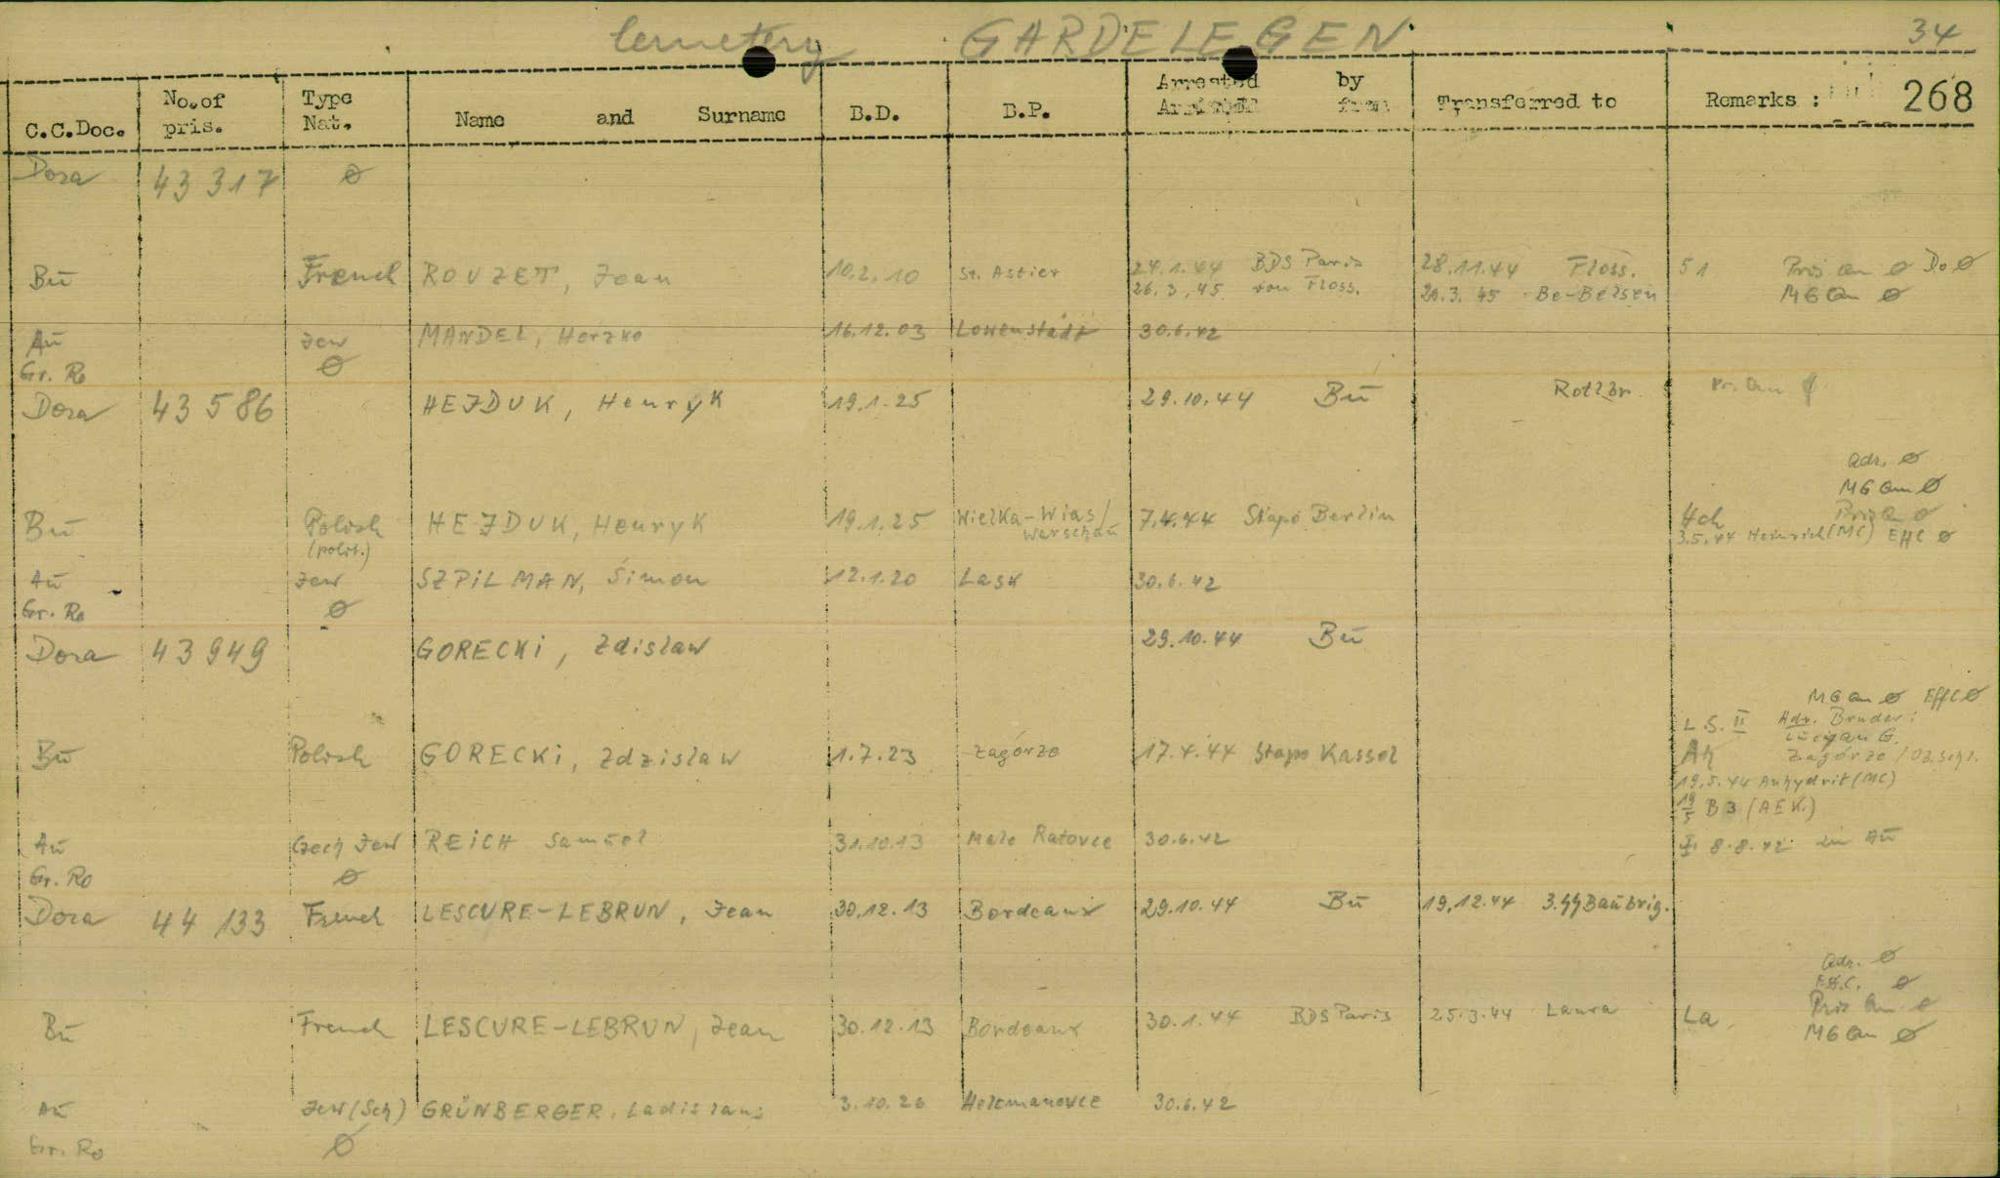 Cemetery GARDELEGEN 34
C.C.Doc. No.of pris. Type Nat. Name and Surname B.D. B.P. Arrested by Transferred to Remarks : 268
Dora 43 317 ø
Bū French ROUZET, Jean 10.2.10 St. Astier 24.1.44 BDS Paris 28.11.44 Floss. 51 Pris an ø Do ø
26.3.45 von Floss. 26.3.45 Be-Belsen MG an ø
Aū Jew MANDEL, Herzko 16.12.03 30.6.42
Gr. Ro ø
Dora 43 586 HEJDUK, Henryk 19.1.25 29.10.44 Bū
Adr. ø
MG an ø
Bū Polish HEJDUK, Henryk 19.1.25 Wielka-Wias/ 7.4.44 Stapo Berlin Hch
(polit.) Warschau 3.5.44 Heinrich (MC) Eff C ø
Aū Jew SZPILMAN, Simon 12.1.20 Lask 30.6.42
Gr. Ro ø
Dora 43 949 GORECKI, Zdislaw 29.10.44 Bū
MG an ø Eff C ø
L.S. II Adr. Bruder:
Lucyan G.
Bū Polish GORECKI, Zdzislaw 1.7.23 Zagórze 17.4.44 Stapo Kassel Ah Zagórze / O.S.
19.5.44 Anhydrit (MC)
19/5 B 3 (AEK.)
Aū Czech Jew REICH Samuel 31.10.13 Male Ratovce 30.6.42 8.8.42 in Aū
Gr. Ro ø
Dora 44 133 French LESCURE-LEBRUN, Jean 30.12.13 Bordeaux 29.10.44 Bū 19.12.44 3.SS Baubrig.
Adr. ø
Eff.C. ø
Bū French LESCURE-LEBRUN, Jean 30.12.13 Bordeaux 30.1.44 BDS Paris 25.3.44 Laura La Pris an ø
MG an ø
Aū Jew (Sch) GRÜNBERGER, Ladislaus 3.10.26 Helcmanovce 30.6.42
Gr. Ro ø